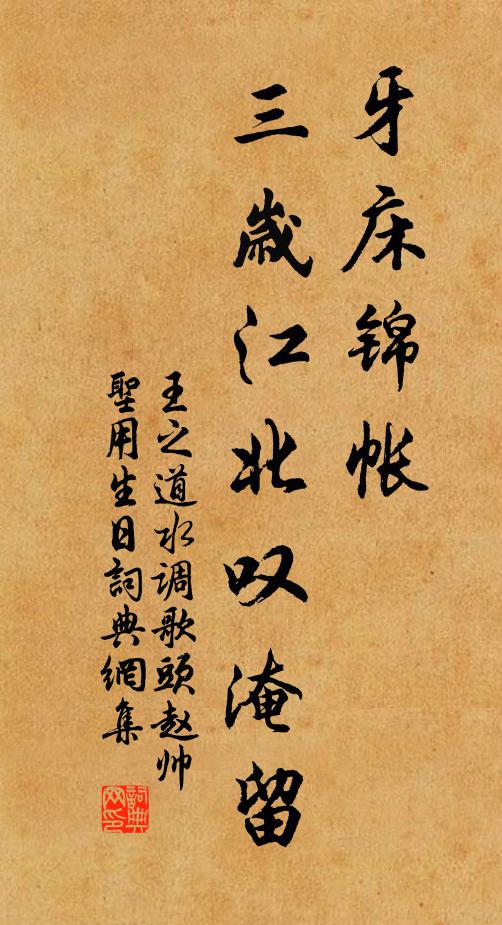 牙床锦帐
三歲江北叹淹留
王之道水调歌頭赵帅
聖用生日詞典網集
詞典网印